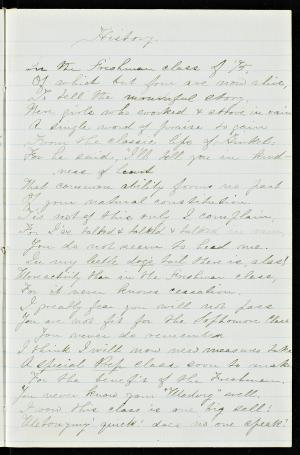 History.
In the Freshman class of '78,
Of which but four are now alive,
To tell the mournful story,
Were girls who worked & strove in vain
A single word of praise to gain
From the classic lips of
For he said, "I'll tell you in kind-
ness of heart
That common ability forms no part
Of your natural constitution
'Tis not of this only I complain,
For I've talked & talked & talked in vain,
You do not seem to heed me.
In my little dog's tail there is, alas!
More activity than in the Freshman class,
For it never knows cessation.
I greatly fear you will not pass
You are not fit for the Sophomore Class
You never do remember
I think I will now new measures take
A special Prep class soon to make
For the benefit of the Freshman.
You never know your well.
I vow this class is one big sell!
quick! does no one speak?